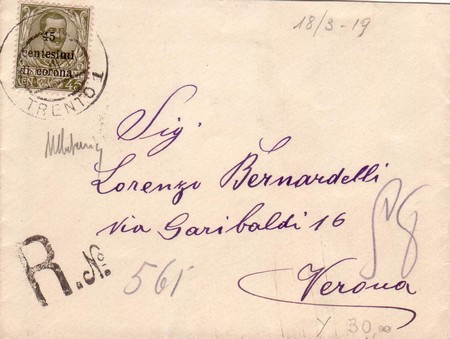 18/3-19
45
centesimi
di corona
TRENTO 1
Sig.
Lorenzo Bernardelli
Via Garibaldi 16
Verona
R. No. 561
30,00